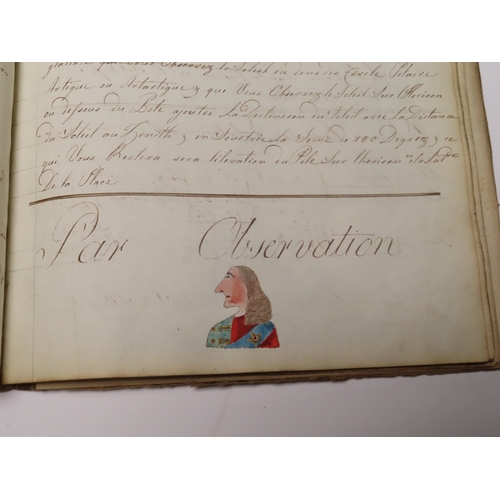 que Vous Observez le Soleil ou dans des Cercle Polaire
Artique ou Antartique, y que Vous Observez le Soleil Sur l'horison
ou desous du Pole ajoutez La Declinaison du Soleil avec la Distance
du Soleil au Zenith, y en Soustraire la Some de 180 Degrez, y ce
qui Vous Restera sera l'elevation du Pole Sur l'horison
De la Place
Par Observation